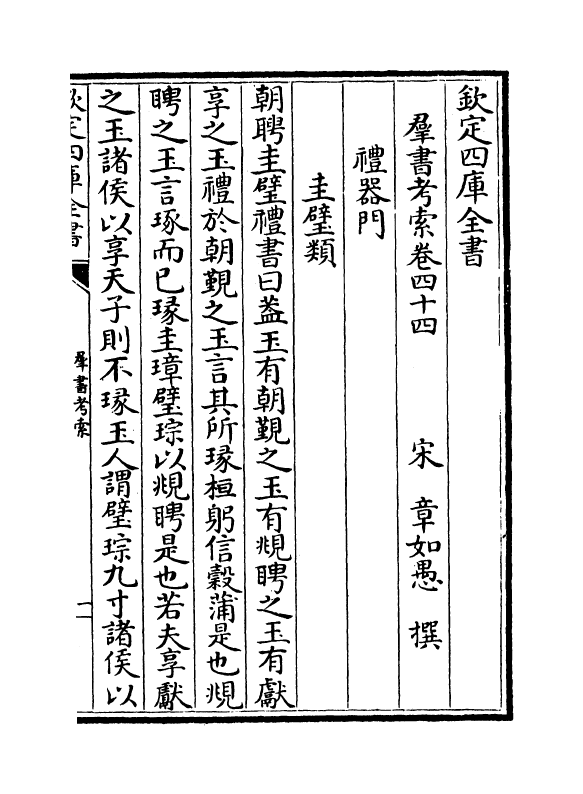 欽定四庫全書
羣書考索卷四十四
宋 章如愚 撰
禮器門
圭璧類
朝聘圭璧禮書曰葢玉有朝覲之玉有覜聘之玉有獻
享之玉禮於朝覲之玉言其所瑑桓躬信穀蒲是也覜
聘之玉言琢而已瑑圭璋璧琮以覜聘是也若夫享獻
之玉諸侯以享天子則不瑑玉人謂璧琮九寸諸侯以
欽定四庫全書
羣書考索
一